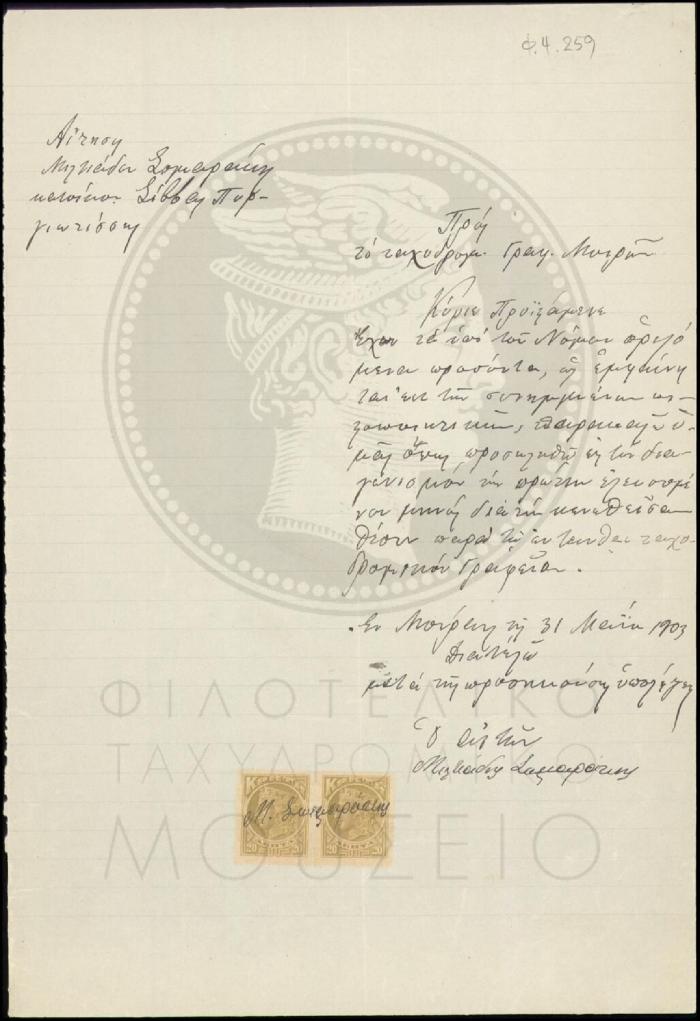 Φ.4.259
Αἴτησις
Μιλτιάδου Σαμαράκη
κατοίκου Σίββα Πυρ-
γιωτίσσης
Πρός
τό ταχυδρομ. Γραφ. Μοιρῶν
Κύριε Προϊστάμενε
Ἔχων τά ὑπό τοῦ Νόμου ὁριζό
μενα προσόντα, ὡς ἐμφαίνη
ται ἐκ τῶν συνημμένων
πιστοποιητικῶν, παρακαλῶ ὑ-
μᾶς ὅπως προσκληθῶ εἰς τόν δια
γωνισμόν τήν πρώτην ἐλευσομέ
νου μηνός διά τήν κενωθεῖσαν
θέσιν παρά τῷ ἐνταῦθα ταχυ
δρομικόν Γραφεῖον.
Ἐν Μοίραις τῇ 31 Μαΐου 1903
Διατελῶ
μετά τῆς προσηκούσης ὑπολήψεως
Ὁ αἰτῶν
Μιλτιάδης Σαμαράκης
Μ. Σαμαράκης
20 ΛΕΠΤΑ 20
20 ΛΕΠΤΑ 20
ΦΙΛΟΤΕΛΙΚΟ
ΤΑΧΥΔΡΟΜΙΚΟ
ΜΟΥΣΕΙΟ